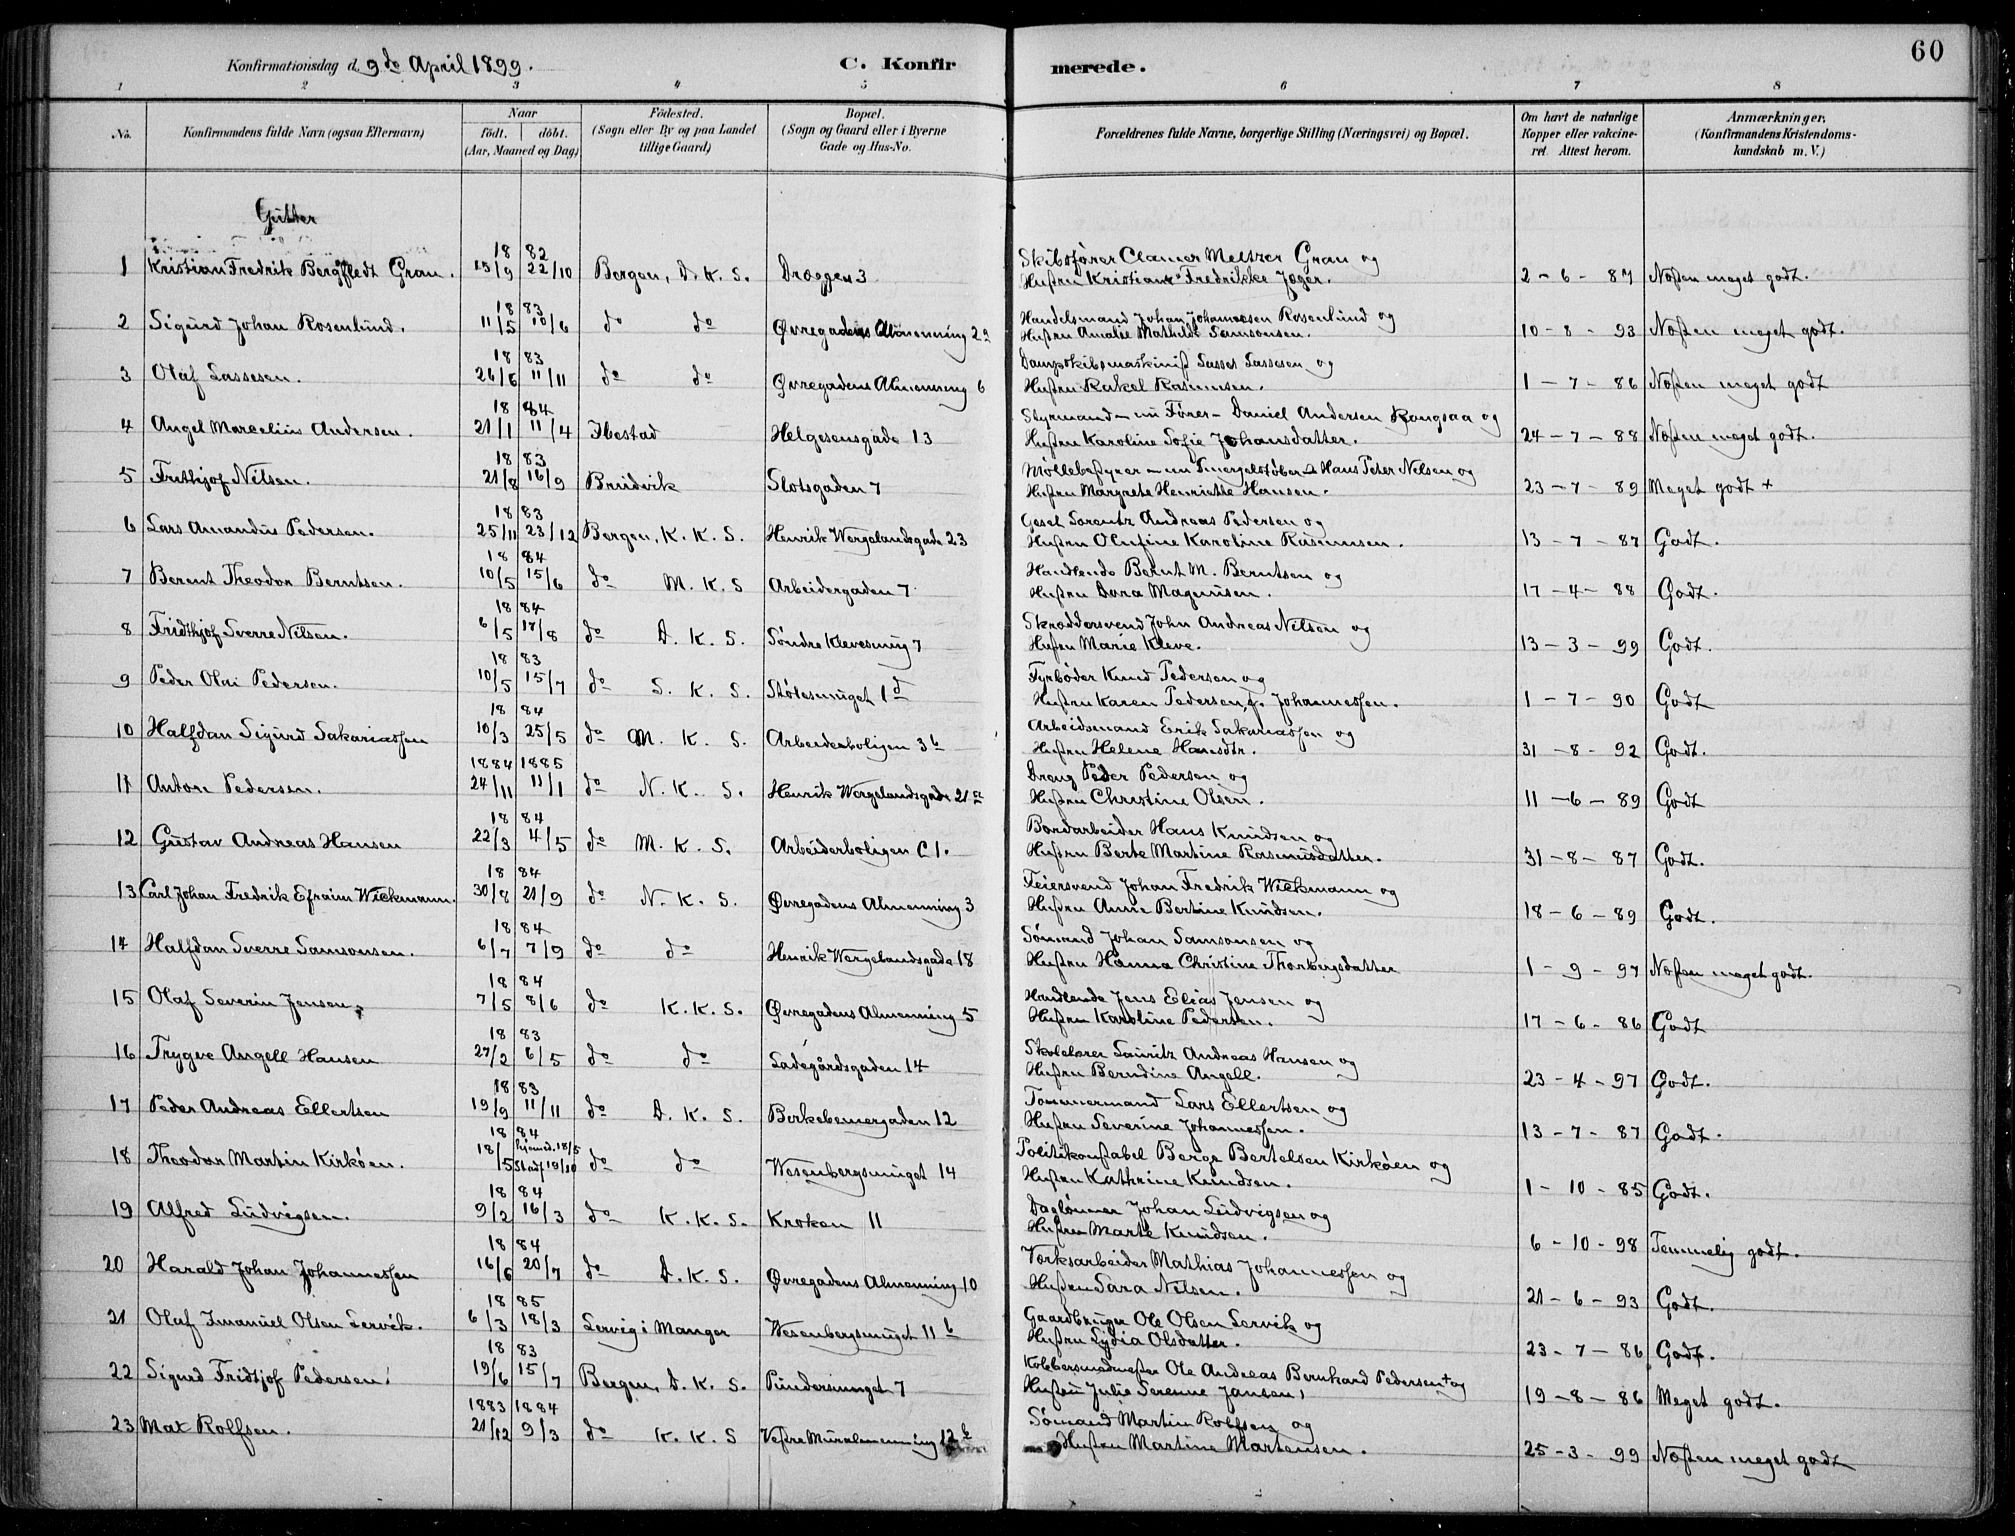 Konfirmationsdag d. 9de April 1899.
C. Konfirmerede.
60
1 2 3 4 5 6 7 8
No. Konfirmandens fulde Navn (ogsaa Efternavn)
Naar født. døbt. (Aar, Maaned og Dag)
Fødested. (Sogn eller By og paa Landet tillige Gaard)
Bopæl. (Sogn og Gaard eller i Byerne Gade og Hus-No.
Forældrenes fulde Navne, borgerlige Stilling (Næringsvei) og Bopæl.
Om havt de naturlige Kopper eller vakcineret. Attest herom.
Anmærkninger, (Konfirmandens Kristendomskundskab m. V.)
Gutter
1 Kristian Fredrik Bergfledt Gran. 1882 15/9 22/10 Bergen, D. K. S. Dræggen 3 Skibsfører Clamer Meltzer Gran og
Hustru Kristiane Fredrikke Jæger. 2 - 6 - 87 Næsten meget godt.
2 Sigurd Johan Rosenlund. 1883 11/5 10/6 do do Øvregadens Almenning 22 Handelsmand Johan Johannesen Rosenlund og
Hustru Amalie Mathilde Samsonsen. 10 - 8 - 93 Næsten meget godt.
3 Olaf Lassesen. 1883 26/6 11/11 do do Øvregadens Almenning 6 Dampskibsmaskinist Lasses Lassesen og
Hustru Rakel Rasmusen. 1 - 7 - 86 Næsten meget godt
4 Angel Marcelius Andersen. 1884 21/1 11/4 Ibestad Helgesensgade 13 Styrmand - nu Fører - Daniel Andersen Rongsaa og
Hustru Karoline Sofie Johansdatter. 24 - 7 - 88 Næsten meget godt.
5 Frithjof Nilsen. 1883 21/8 16/9 Bruvik Slotsgaden 7 Møllebestyrer - nu Smergelstøber - Hans Peter Nilsen og
Hustru Margrete Henriette Hansen. 23 - 7 - 89 Meget godt +
6 Lars Amandus Pedersen. 1883 25/11 23/12 Bergen, K. K. S. Henrik Wergelandsgade 23 Gesel Lorentz Andreas Pedersen og
Hustru Olufine Karoline Rasmusen. 13 - 7 - 87 Godt.
7 Berent Theodor Berntsen. 1884 10/5 15/6 do M. K. S Arbeidergaden 7 Handlende Bernt M. Berntsen og
Hustru Dora Magnusen. 17 - 4 - 88 Godt.
8 Fridthjof Sverre Nilsen. 1884 6/5 17/8 do D. K. S. Søndre Klevesmug 7 Skræddersvend John Andreas Nilsen og
Hustru Marie Kleve. 13 - 3 - 99 Godt.
9 Peder Olai Pedersen. 1883 10/5 15/7 do S. K. S. Støletsmuget 1 d Fyrbøder Knud Pedersen og
Hustru Karen Pedersen, f. Johannessen. 1 - 7 - 90 Godt
10 Halfdan Sigurd Sakariassen 1884 10/3 25/5 do M. K. S. Arbeiderboligen 3 b Arbeidsmand Erik Sakariassen og
Hustru Helene Hansdtr. 31 - 8 - 92 Godt.
11 Anton Pedersen. 1884 1885 24/11 11/1 do N. K. S. Henrik Wergelandsgade 21 Dreng Peder Pedersen og
Hustru Christine Olsen. 11 - 6 - 89 Godt
12 Gustav Andreas Hansen 1884 22/3 4/5 do M. K. S. Arbeiderboligen C 1. Bordarbeider Hans Knudsen og
Hustru Berte Martine Rasmusdatter. 31 - 8 - 87 Godt.
13 Carl Johan Fredrik Efraim Wickmann. 1884 30/8 21/9 do N. K. S. Øvregadens Almenning 3 Feiersvend Johan Fredrik Wickmann og
Hustru Anne Bertine Knudsen. 18 - 6 - 89 Godt.
14 Halfdan Sverre Samsonsen. 1884 6/7 7/9 do do Henrik Wergelandsgade 18 Sømand Johan Samsonsen og
Hustru Hanna Christine Thorbergsdatter 1 - 9 - 97 Næsten meget godt.
15 Olaf Severin Jensen. 1884 7/5 8/6 do K. K. S. Øvregadens Almenning 5 Handlende Jens Elias Jensen og
Hustru Karoline Pedersen. 17 - 6 - 86 Godt
16 Trygve Angell Hansen 1883 27/2 6/5 do do Ladegårdsgaden 14 Skolelærer Lauritz Andreas Hansen og
Hustru Berndine Angell. 23 - 4 - 97 Godt.
17 Peder Andreas Ellertsen 1883 19/9 11/11 do D. K. S. Birkebeinergaden 12 Tømmermand Lars Ellertsen og
Hustru Severine Johannessen. 13 - 7 - 87 Godt.
18 Theodor Martin Kirkøen. 1884 18/5 hjemmed. 18/5 Stadf 19/10 do do Wesenbergsmuget 14 Politikonstabel Berge Bertelsen Kirkøen og
Hustru Kathrine Knudsen. 1 - 10 - 85 Godt.
19 Alfred Ludvigsen. 1884 9/2 16/3 do K. K. S. Kroken 11 Daglønner Johan Ludvigsen og
Hustru Marte Knudsen. 6 - 10 - 98 Temmelig godt.
20 Harald Johan Johannessen 1884 16/6 20/7 do D. K. S. Øvregadens Almenning 10 Værksarbeider Mathias Johannessen og
Hustru Sara Nilsen. 21 - 6 - 93 Godt.
21 Olaf Imanuel Olsen Lervik. 1885 6/3 18/3 Lervig i Manger Wesenbergsmuget 11 b Gaardbruger Ole Olsen Lervik og
Hustru Lydia Olsdatter. 23 - 7 - 86 Godt.
22 Sigurd Fridtjof Pedersen. 1883 19/6 15/7 Bergen, D. K. S. Pundersmuget 7 Kobbersmedmester Ole Andreas Bernhard Pedersen + og
Hustru Julie Serenne Jansen, 19 - 8 - 86 Meget godt.
23 Max Rolfsen. 1883 1884 21/12 9/3 do K. K. S Vestre Muralmenning 12 b Sømand Martin Rolfsen og
Hustru Martine Martensen. 25 - 3 - 99 Næsten meget godt